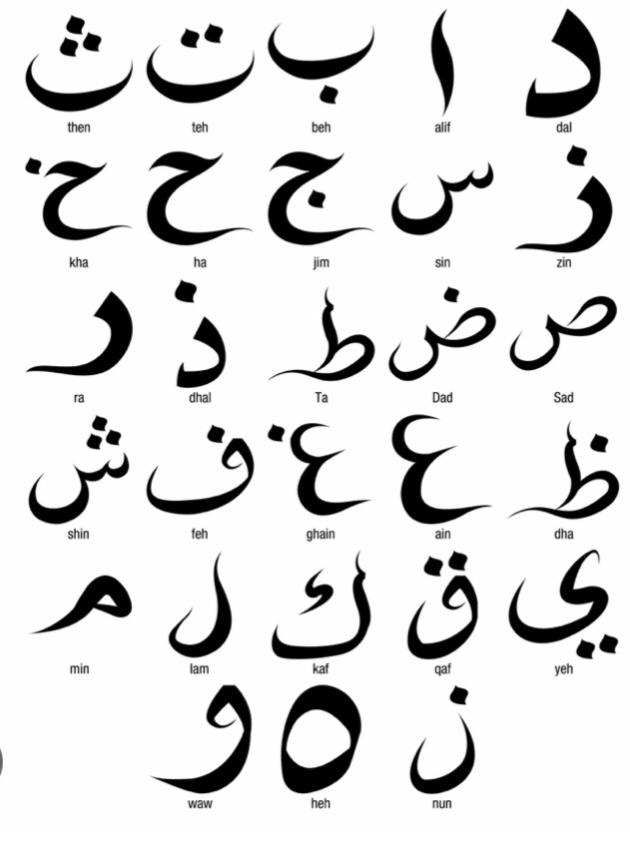 د ا ب ت ث
then teh beh alif dal
ز س ج ح خ
kha ha jim sin zin
ص ض ط ذ ر
ra dhal Ta Dad Sad
ظ ع غ ف ش
shin feh ghain ain dha
ي ق ك ل م
min lam kaf qaf yeh
ن ه و
waw heh nun